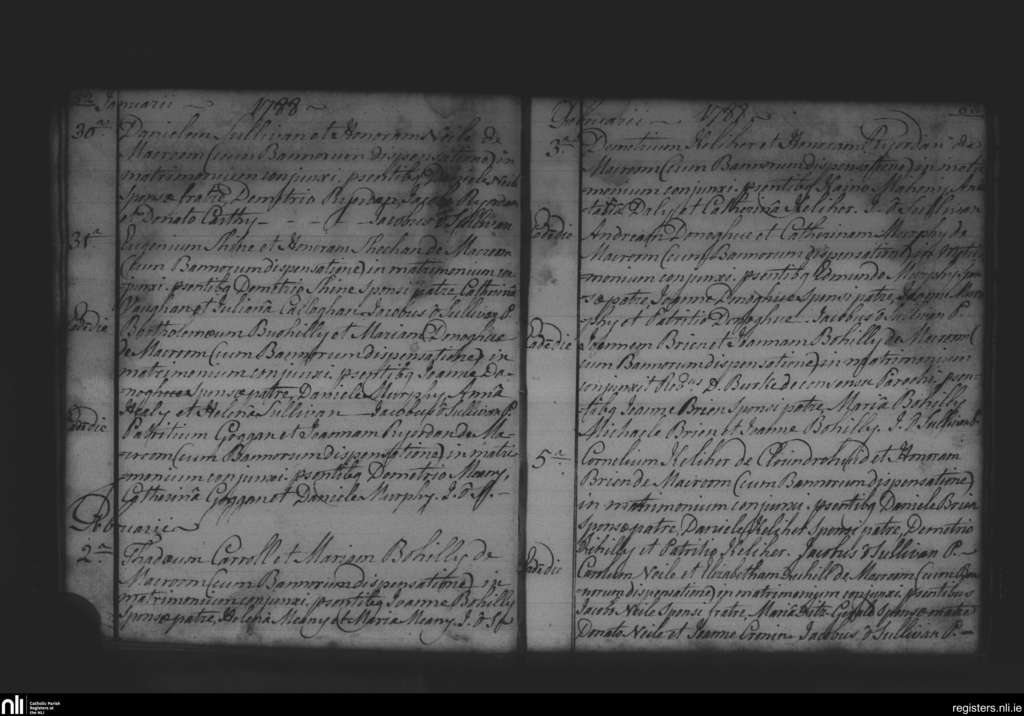 Januarii 1788
30ª Danielem Sullivan et Honoram Neile de
Macroom (cum Bannorum dispensatione) in
matrimonium conjunxi. psentibq Daniele Neile
sponsæ fratre, Demetrio Ryerdan Jacobo Ryerdan
et Donato Carthy - - - Jacobus O Sullivan
31ª Eugenium Shine et Honoram Sheehan de Macroom
(cum Bannorum dispensatione) in matrimonium con
junxi. psentibq Demetrio Shine Sponsi patre Catherinâ
Vaughan et Julianâ Callaghan. Jacobus O Sullivan P.
Eadedie Bartholomæum Buohilly et Mariam Donoghue
de Macroom (cum Bannorum dispensatione) in
matrimonium conjunxi. psentibq Joanne Do-
noghue sponsæ patre, Daniele Murphy Annâ
Healy et Helenâ Sullivan Jacobus O Sullivan P.
Eadedie Patritium Goggan et Joannam Ryerdan de Ma-
croom (cum Bannorum dispensatione) in matri-
monium conjunxi. psentibq Demetrio Meany,
Catherinâ Goggan et Daniele Murphy. J. O S.
Februarii
2ª Thadæum Carroll et Mariam Bohilly de
Macroom (cum Bannorum dispensatione) in
matrimonium conjunxi. psentibq Joanne Bohilly
Sponsæ patre, Helenâ Meany et Mariâ Meany. J. O S
Februarii 1788
3ª Demetrium Keliher et Honoram Ryerdan de
Macroom (cum Bannorum dispensatione) in matri
monium conjunxi. psentibq Mahony Ana
statiâ Daly et Catherinâ Keliher. J. O Sullivan
Eadedie Andream Donoghue et Catherinam Murphy de
Macroom (cum Bannorum dispensatione) in matri
monium conjunxi. psentibq Edmundo Murphy spon
sæ patre, Joanne Donoghue Sponsi patre, Mur
phy et Patritio Donoghue. Jacobus O Sullivan P.
Eadedie Joannem Brien et Joannam Bohilly de Macroom (
cum Bannorum dispensatione) in matrimonium
conjunxit D. Burke de consensu Parochi. psen
tibq Joanne Brien Sponsi patre, Mariâ Bohilly
Michaele Brien et Joanne Bohilly. J. O Sullivan P.
5ª Cornelium Keliher de et Honoram
Brien de Macroom (cum Bannorum dispensatione)
in matrimonium conjunxi. psentibq Daniele Brien
sponsæ patre, Daniele Keliher Sponsi patre, Demetrio
Bohilly et Patritio Keliher. Jacobus O Sullivan P.
Eadedie Neile et Elizabetham de Macroom (cum Ban
norum dispensatione) in matrimonium conjunxi. psentibus
Jacobo Neile Sponsi fratre, Mariâ Sponsæ matre
Donato Neile et Joanne Cronin Jacobus O Sullivan P.
nli
Catholic Parish
Registers at
the NLI
registers.nli.ie